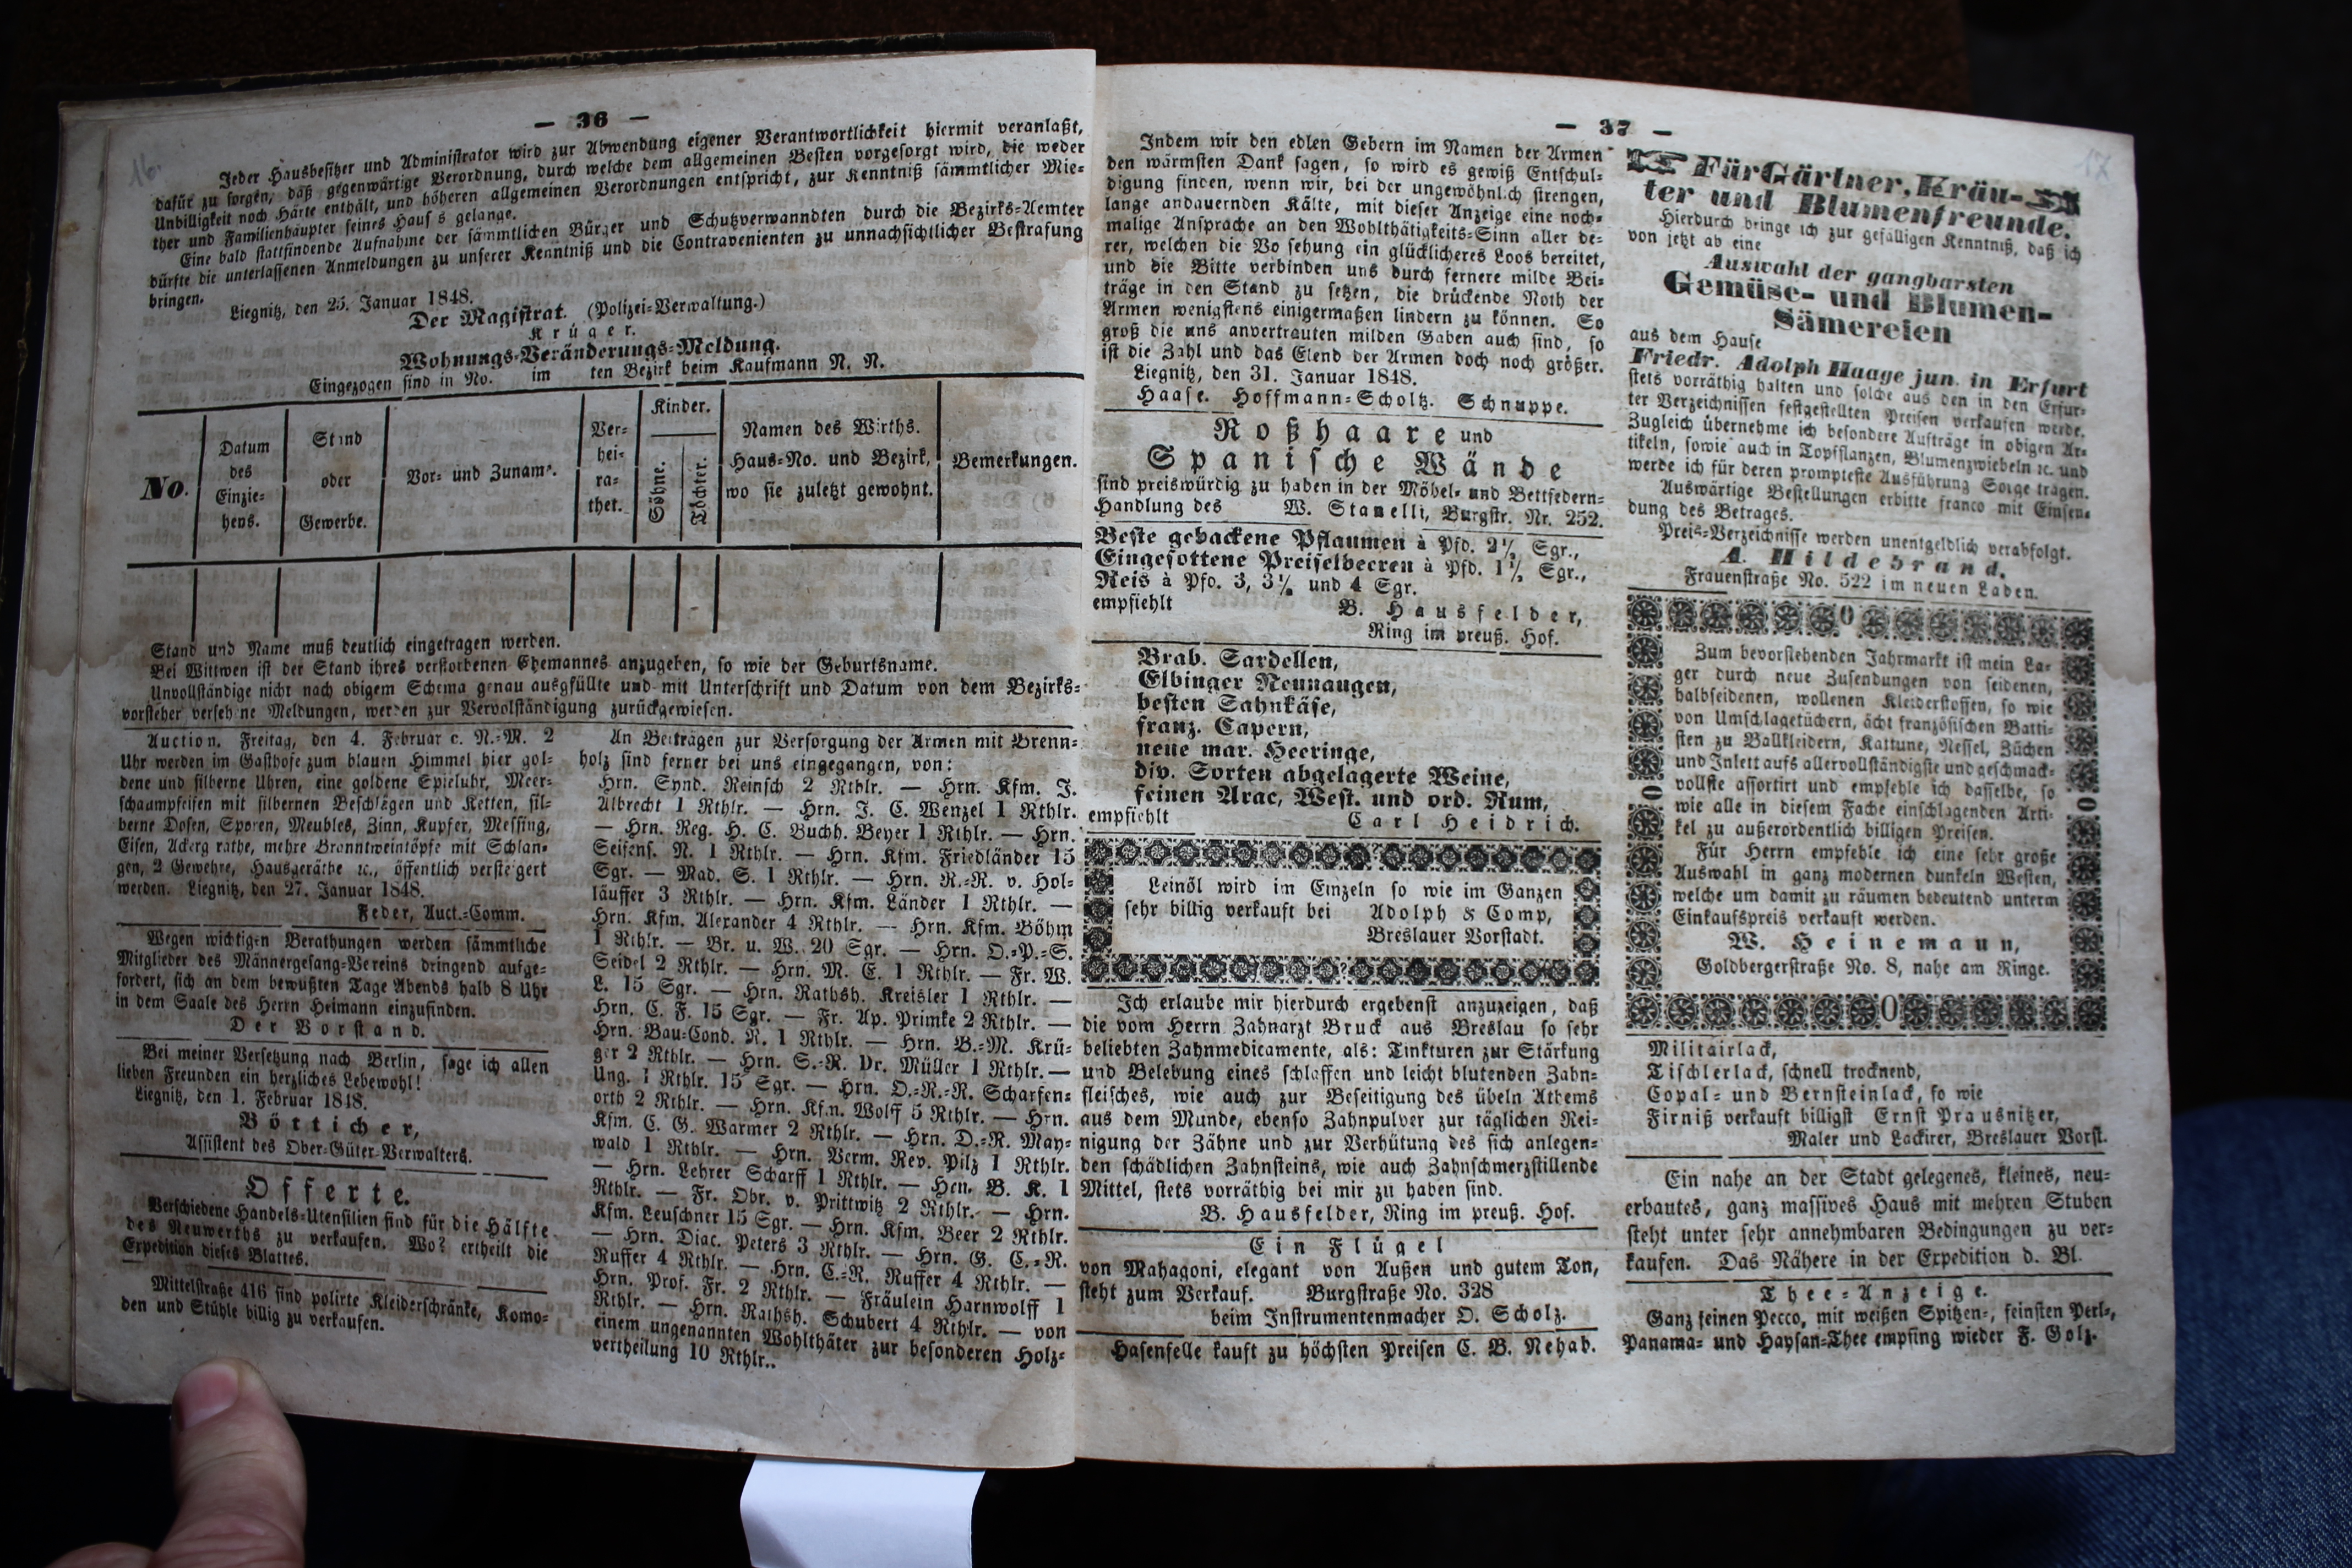 — 36 —
16.
Jeder Hausbesitzer und Administrator wird zur Abwendung eigener Verantwortlichkeit hiermit veranlaßt,
dafür zu sorgen, daß gegenwärtige Verordnung, durch welche dem allgemeinen Besten vorgesorgt wird, die weder
Unbilligkeit noch Härte enthält, und höheren allgemeinen Verordnungen entspricht, zur Kenntniß sämmtlicher Mie-
ther und Familienhäupter seines Haus s gelange.
Eine bald stattfindende Aufnahme der sämmtlichen Bürger und Schutzverwanndten durch die Bezirks-Aemter
dürfte die unterlassenen Anmeldungen zu unserer Kenntniß und die Contravenienten zu unnachsichtlicher Bestrafung
bringen.
Liegnitz, den 25. Januar 1848.
Der Magistrat. (Polizei-Verwaltung.)
Krüger.
Wohnungs-Veränderungs-Meldung.
Eingezogen sind in No. im ten Bezirk beim Kaufmann N. N.
No.
Datum
des
Einzie-
hens.
Stand
oder
Gewerbe.
Vor- und Zuname.
Ver-
hei-
ra-
thet.
Kinder.
Söhne.
Töchter.
Namen des Wirths.
Haus-No. und Bezirk,
wo sie zuletzt gewohnt.
Bemerkungen.
Stand und Name muß deutlich eingetragen werden.
Bei Wittwen ist der Stand ihres verstorbenen Ehemannes anzugeben, so wie der Geburtsname.
Unvollständige nicht nach obigem Schema genau ausgfüllte und mit Unterschrift und Datum von dem Bezirks-
vorsteher verseh ne Meldungen, werden zur Vervolständigung zurückgewiesen.
Auction. Freitag, den 4. Februar c. N.-M. 2
Uhr werden im Gasthofe zum blauen Himmel hier gol-
dene und silberne Uhren, eine goldene Spieluhr, Meer-
schaumpfeifen mit silbernen Beschlägen und Ketten, sil-
berne Dosen, Sporen, Meubles, Zinn, Kupfer, Messing,
Eisen, Ackerg räthe, mehre Branntweintöpfe mit Schlan-
gen, 2 Gewehre, Hausgeräthe ꝛc., öffentlich versteigert
werden. Liegnitz, den 27. Januar 1848.
Feder, Auct.-Comm.
Wegen wichtigen Berathungen werden sämmtliche
Mitglieder des Männergesang-Vereins dringend aufge-
fordert, sich an dem bewußten Tage Abends halb 8 Uhr
in dem Saale des Herrn Heimann einzufinden.
Der Vorstand.
Bei meiner Versetzung nach Berlin, sage ich allen
lieben Freunden ein herzliches Lebewohl!
Liegnitz, den 1. Februar 1848.
Bötticher,
Assistent des Ober-Güter-Verwalters.
Offerte.
Verschiedene Handels-Utensilien sind für die Hälfte
des Neuwerths zu verkaufen. Wo? ertheilt die
Expedition dieses Blattes.
Mittelstraße 416 sind polirte Kleiderschränke, Komo-
den und Stühle billig zu verkaufen.
An Beiträgen zur Versorgung der Armen mit Brenn-
holz sind ferner bei uns eingegangen, von:
Hrn. Synd. Reinsch 2 Rthlr. — Hrn. Kfm. J.
Albrecht 1 Rthlr. — Hrn. J. C. Wenzel 1 Rthlr.
— Hrn. Reg. H. C. Buchh. Beyer 1 Rthlr. — Hrn.
Seifens. N. 1 Rthlr. — Hrn. Kfm. Friedländer 15
Sgr. — Mad. S. 1 Rthlr. — Hrn. R.-R. v. Hol-
läuffer 3 Rthlr. — Hrn. Kfm. Länder 1 Rthlr. —
Hrn. Kfm. Alexander 4 Rthlr. — Hrn. Kfm. Böhm
1 Rthlr. — Br. u. W. 20 Sgr. — Hrn. O.-P.-S.
Seidel 2 Rthlr. — Hrn. M. E. 1 Rthlr. — Fr. W.
L. 15 Sgr. — Hrn. Rathsh. Kreisler 1 Rthlr. —
Hrn. C. F. 15 Sgr. — Fr. Ap. Primke 2 Rthlr. —
Hrn. Bau-Cond. N. 1 Rthlr. — Hrn. B.-M. Krü-
ger 2 Rthlr. — Hrn. S.-R. Dr. Müller 1 Rthlr. —
Ung. 1 Rthlr. 15 Sgr. — Hrn. O.-R.-R. Scharfen-
orth 2 Rthlr. — Hrn. Kfm. Wolff 5 Rthlr. — Hrn.
Kfm. C. G. Warmer 2 Rthlr. — Hrn. O.-R. May-
wald 1 Rthlr. — Hrn. Verm. Rev. Pilz 1 Rthlr.
— Hrn. Lehrer Scharff 1 Rthlr. — Hrn. B. K. 1
Rthlr. — Fr. Obr. v. Prittwitz 2 Rthlr. — Hrn.
Kfm. Leuschner 15 Sgr. — Hrn. Kfm. Beer 2 Rthlr.
— Hrn. Diac. Peters 3 Rthlr. — Hrn. G. C.-R.
Ruffer 4 Rthlr. — Hrn. C.-R. Ruffer 4 Rthlr. —
Hrn. Prof. Fr. 2 Rthlr. — Fräulein Harnwolff 1
Rthlr. — Hrn. Rathsh. Schubert 4 Rthlr. — von
einem ungenannten Wohlthäter zur besonderen Holz-
vertheilung 10 Rthlr..
— 37 —
17
Indem wir den edlen Gebern im Namen der Armen
den wärmsten Dank sagen, so wird es gewiß Entschul-
digung finden, wenn wir, bei der ungewöhnlich strengen,
lange andauernden Kälte, mit dieser Anzeige eine noch-
malige Ansprache an den Wohlthätigkeits-Sinn aller de-
rer, welchen die Vo sehung ein glücklicheres Loos bereitet,
und die Bitte verbinden uns durch fernere milde Bei-
träge in den Stand zu setzen, die drückende Noth der
Armen wenigstens einigermaßen lindern zu können. So
groß die uns anvertrauten milden Gaben auch sind, so
ist die Zahl und das Elend der Armen doch noch größer.
Liegnitz, den 31. Januar 1848.
Haase. Hoffmann-Scholtz. Schnuppe.
Roßhaare und
Spanische Wände
sind preiswürdig zu haben in der Möbel- und Bettfedern-
Handlung des W. Stanelli, Burgstr. Nr. 252.
Beste gebackene Pflaumen à Pfd. 2½ Sgr.,
Eingesottene Preiselbeeren à Pfd. 1½ Sgr.,
Reis à Pfd. 3, 3½ und 4 Sgr.
empfiehlt B. Hausfelder,
Ring im preuß. Hof.
Brab. Sardellen,
Elbinger Neunaugen,
besten Sahnkäse,
franz. Capern,
neue mar. Heeringe,
div. Sorten abgelagerte Weine,
feinen Arac, West. und ord. Rum,
empfiehlt Carl Heidrich.
Leinöl wird im Einzeln so wie im Ganzen
sehr billig verkauft bei Adolph & Comp,
Breslauer Vorstadt.
Ich erlaube mir hierdurch ergebenst anzuzeigen, daß
die vom Herrn Zahnarzt Bruck aus Breslau so sehr
beliebten Zahnmedicamente, als: Tinkturen zur Stärkung
und Belebung eines schlaffen und leicht blutenden Zahn-
fleisches, wie auch zur Beseitigung des übeln Athems
aus dem Munde, ebenso Zahnpulver zur täglichen Rei-
nigung der Zähne und zur Verhütung des sich anlegen-
den schädlichen Zahnsteins, wie auch Zahnschmerzstillende
Mittel, stets vorräthig bei mir zu haben sind.
B. Hausfelder, Ring im preuß. Hof.
Ein Flügel
von Mahagoni, elegant von Außen und gutem Ton,
steht zum Verkauf. Burgstraße No. 328
beim Instrumentenmacher O. Scholz.
Hasenfelle kauft zu höchsten Preisen C. B. Nehab.
Für Gärtner, Kräu-
ter und Blumenfreunde.
Hierdurch bringe ich zur gefälligen Kenntniß, daß ich
von jetzt ab eine
Auswahl der gangbarsten
Gemüse- und Blumen-
Sämereien
aus dem Hause
Friedr. Adolph Haage jun. in Erfurt
stets vorräthig halten und solche aus den in den Erfur-
ter Verzeichnissen festgestellten Preisen verkaufen werde.
Zugleich übernehme ich besondere Aufträge in obigen Ar-
tikeln, sowie auch in Topfpflanzen, Blumenzwiebeln ꝛc. und
werde ich für deren prompteste Ausführung Sorge tragen.
Auswärtige Bestellungen erbitte franco mit Einsen-
dung des Betrages.
Preis-Verzeichnisse werden unentgeldlich verabfolgt.
A. Hildebrand.
Frauenstraße No. 522 im neuen Laden.
Zum bevorstehenden Jahrmarkt ist mein La-
ger durch neue Zusendungen von seidenen,
halbseidenen, wollenen Kleiderstoffen, so wie
von Umschlagetüchern, ächt französischen Batti-
sten zu Ballkleidern, Kattune, Nessel, Züchen
und Inlett aufs allervollständigste und geschmack-
vollste assortirt und empfehle ich dasselbe, so
wie alle in diesem Fache einschlagenden Arti-
kel zu außerordentlich billigen Preisen.
Für Herrn empfehle ich eine sehr große
Auswahl in ganz modernen dunkeln Westen,
welche um damit zu räumen bedeutend unterm
Einkaufspreis verkauft werden.
W. Heinemann,
Goldbergerstraße No. 8, nahe am Ringe.
Militairlack,
Tischlerlack, schnell trocknend,
Copal- und Bernsteinlack, so wie
Firniß verkauft billigst Ernst Prausnitzer,
Maler und Lackirer, Breslauer Vorst.
Ein nahe an der Stadt gelegenes, kleines, neu-
erbautes, ganz massives Haus mit mehren Stuben
steht unter sehr annehmbaren Bedingungen zu ver-
kaufen. Das Nähere in der Expedition d. Bl.
Thee-Anzeige.
Ganz feinen Pecco, mit weißen Spitzen-, feinsten Perl-,
Panama- und Haysan-Thee empfing wieder F. Golz.